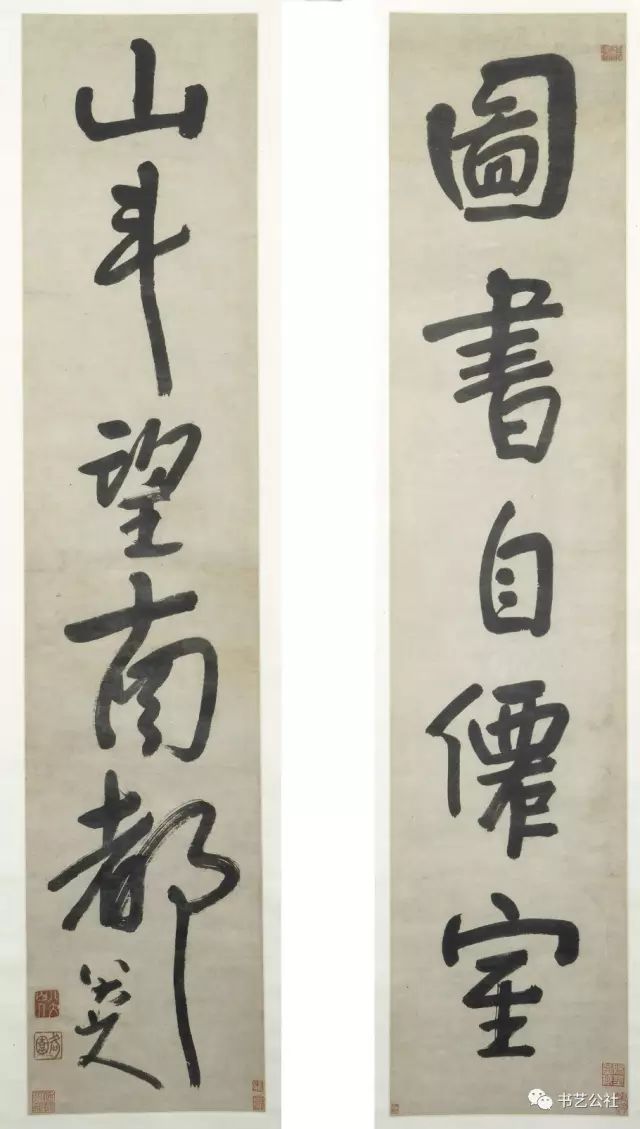 圖書自僊室
山斗望南都
八大山人
书艺公社